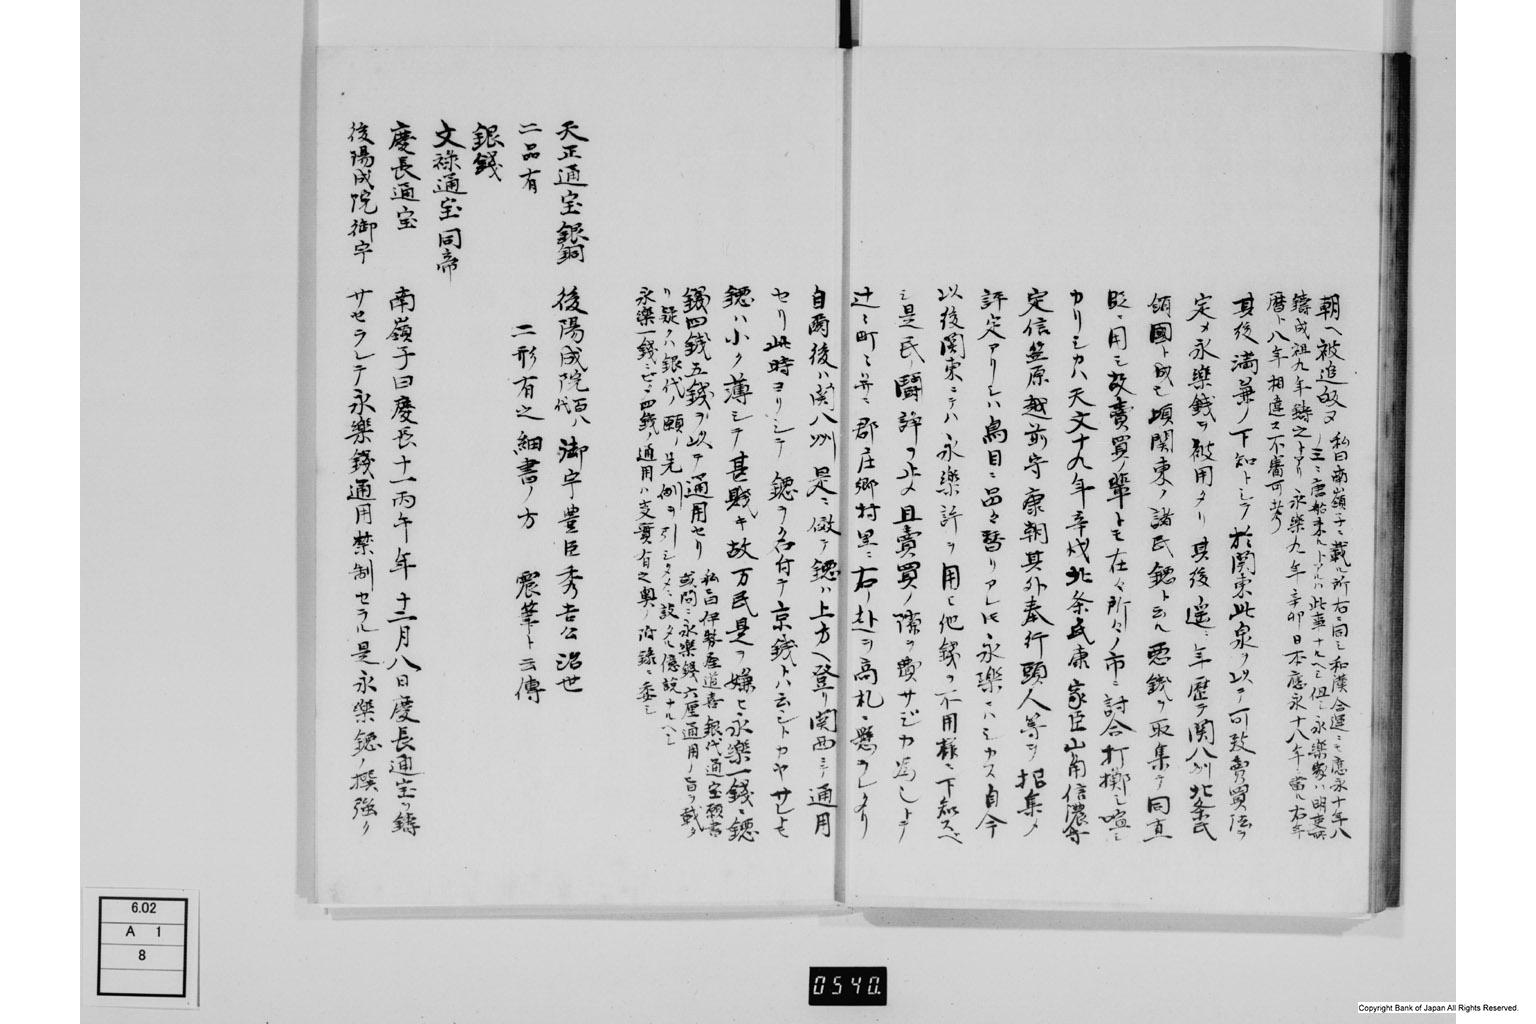 朝ヘ被追故ヌ 私曰南嶺子ニ載ル所右ニ同シ和漢合運ニモ應永十年八
ノ三ニ唐船来ルトアルハ此事ナルヘシ但シ永樂
鑄成祖九年鑄之トアリ永樂九年辛卯日本應永十八年ニ當ル右年
暦ト八年相違ス不審可考
其後満兼ノ下知トシテ於関東此泉ヲ以テ可致賣買法ヲ
定メ永樂錢ヲ被用タリ其後遥ニ年歴テ関八州北条氏
領國ト成シ頃関東ノ諸民鐚ト云ヘル悪錢ヲ取集テ同直
段ニ用シ故賣買ノ輩トモ在々所々ノ市ニ討合打擲シ喧シ
カリシカハ天文十九年辛戌北条氏康家臣山角信濃守
定信笠原越前守康朝其外奉行頭人等ヲ招集メ
評定アリシハ鳥目ニ品々替リアレ𪜈永樂ニハシカス自今
以後関東ニテハ永樂許ヲ用ヒ他錢ヲ不用様ニ下知スベ
シ是民ノ鬪諍ヲ止メ且賣買ノ隙ヲ費サジカ為しトテ
辻々町々并ニ郡庄郷村里ニ右ノ趣ヲ高札ニ懸ラレタリ
自爾後ハ関八州是ニ倣テ鐚ハ上方ヘ登リ関西ニテ通用
セリ此時ヨリシテ鐚ヲ名付テ京錢トハ云シトカヤサレトモ
鐚ハ小ク薄シテ甚賤キ故万民是ヲ嫌ヒ永樂一錢ニ鐚
錢四錢五錢ヲ以テ通用セリ 私曰伊勢屋道喜銀代通宝願書
或問ニ永樂錢六厘通用ノ旨ヲ載タ
リ疑クハ銀代ノ願ノ先例ヲ引シタメニ設タル億説ナルヘシ
永樂一錢ニビタ四錢ノ通用ハ支實有之奥ノ附録ニ委シ
天正通宝銀銅 後陽成院百八代御宇豊臣秀吉公治世
二品有 二形有之細書ノ方 震筆ト云傳
銀錢
文禄通宝同帝
慶長通宝 南嶺子曰慶長十一丙午年十二月八日慶長通宝ヲ鑄
後陽成院御宇 サセラレテ永樂錢通用禁制セラル是永樂鐚ノ撰強ク
6.02
A 1
8
0540.
Copyright Bank of Japan All Rights Reserved.